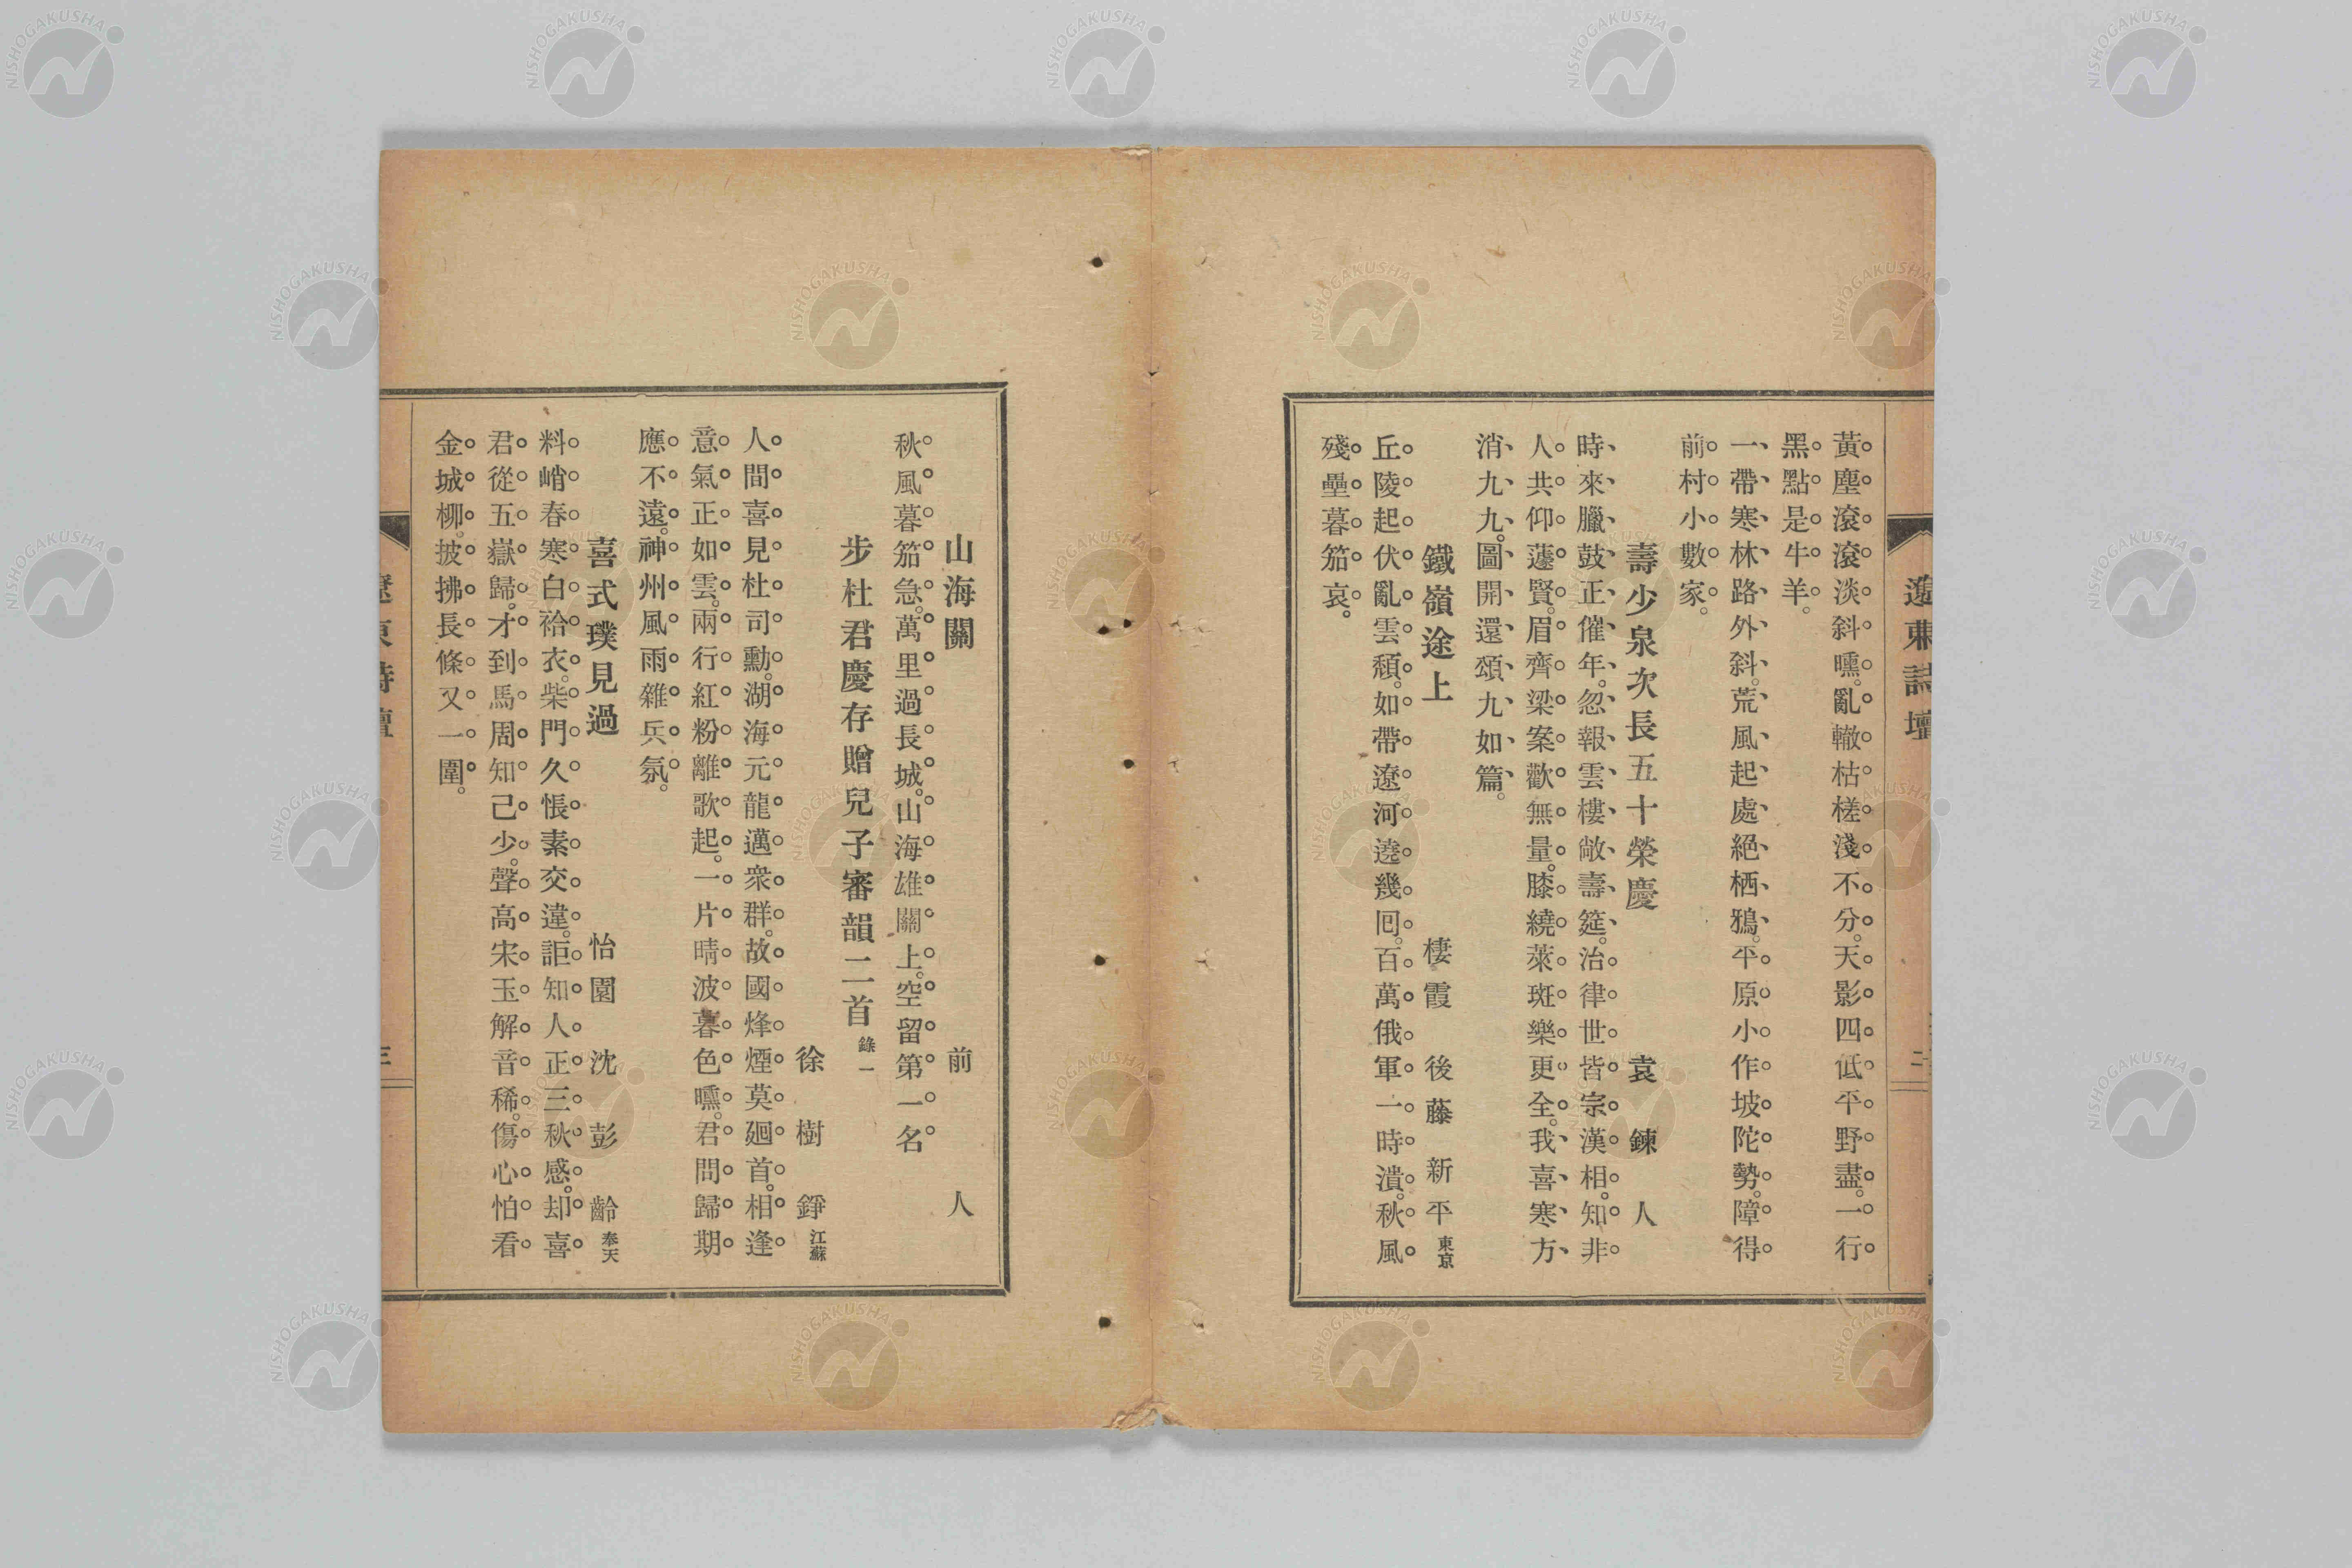 遼東詩壇
二
黃塵滾滾淡斜曛。亂轍枯槎淺不分。天影四低平野盡。一行
黑點是牛羊。
一帶寒林路外斜。荒風起處絕栖鴉。平原小作坡陀勢。障得
前村小數家。
壽少泉次長五十榮慶 袁鍊人
時來臘鼓正催年。忽報雲樓敞壽筵。治律世皆宗漢相。知非
人共仰蘧賢。眉齊梁案歡無量。膝繞萊斑樂更全。我喜寒方
消九九。圖開還頌九如篇。
鐵嶺途上 棲霞 後藤新平 東京
丘陵起伏亂雲頽。如帶遼河遶幾囘。百萬俄軍一時潰。秋風
殘壘暮笳哀。
山海關 前人
秋風暮笳急。萬里過長城。山海雄關上。空留第一名
步杜君慶存贈兒子審韻二首 錄一
徐樹錚 江蘇
人間喜見杜司勳。湖海元龍邁衆群。故國烽煙莫廻首。相逢
意氣正如雲。兩行紅粉離歌起。一片晴波暮色曛。君問歸期
應不遠。神州風雨雜兵氛。
喜式璞見過 怡園 沈彭齡 奉天
料峭春寒白袷衣。柴門久悵素交違。詎知人正三秋感。却喜
君從五嶽歸。才到馬周知己少。聲高宋玉解音稀。傷心怕看
金城柳。披拂長條又一圍。
遼東詩壇
三
NISHOGAKUSHA